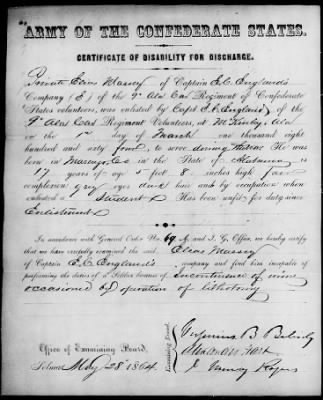 ARMY OF THE CONFEDERATE STATES.
CERTIFICATE OF DISABILITY FOR DISCHARGE.
Private Elias Massey of Captain E. C. England's
Company (E) of the 9" Ala Cav Regiment of Confederate
States volunteers, was enlisted by Capt E. C. England, of the
9" Ala Cav Regiment Volunteers, at McKinley Ala
on the day of March one thousand eight
hundred and sixty four, to serve during the war He was
born in Marengo Co in the State of Alabama is
17 years of age 5 feet 8 inches high fair
complexion grey eyes dark hair and by occupation when
enlisted a Student Has been unfit for duty since
Enlistment
In accordance with General Order No. 69 A. and I. G. Office, we hereby certify
that we have carefully examined the said Elias Massey
of Captain E. C. England's company and find him incapable of
performing the duties of a Soldier because of incontinence of urine
occasioned by operation of lithotomy
Office of Examining Board,
Selma May 28" 1864
Examining Board.
B
Alexander Hart